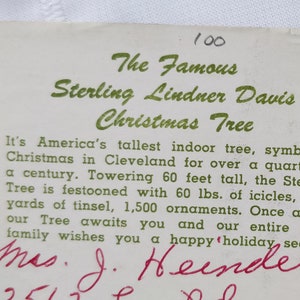 100
The Famous
Sterling Lindner Davis
Christmas Tree
It's America's tallest indoor tree, symb
Christmas in Cleveland for over a quart
a century. Towering 60 feet tall, the Ste
Tree is festooned with 60 lbs. of icicles,
yards of tinsel, 1,500 ornaments. Once a
our Tree awaits you and our entire
family wishes you a happy holiday se
Mrs. J. Heinde